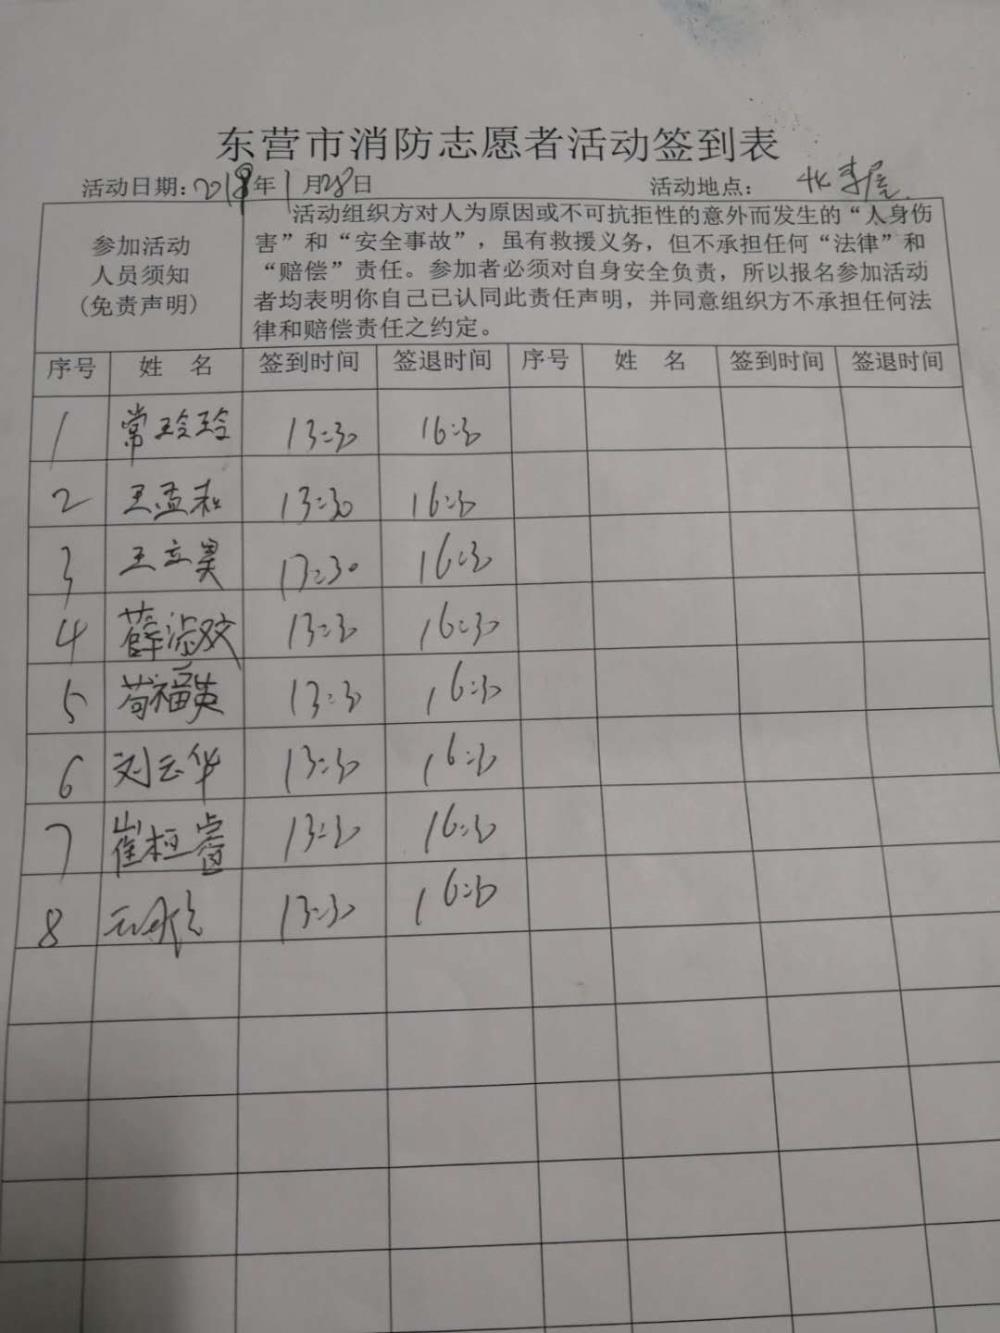 东营市消防志愿者活动签到表
活动日期：2018年1月28日 活动地点：北李屋
参加活动
人员须知
(免责声明)
活动组织方对人为原因或不可抗拒性的意外而发生的“人身伤
害”和“安全事故”，虽有救援义务，但不承担任何“法律”和
“赔偿”责任。参加者必须对自身安全负责，所以报名参加活动
者均表明你自己已认同此责任声明，并同意组织方不承担任何法
律和赔偿责任之约定。
序号 姓 名 签到时间 签退时间 序号 姓 名 签到时间 签退时间
1 常玲玲 13:30 16:30
2 王孟和 13:30 16:30
3 王立昊 13:30 16:30
4 薛淑双 13:30 16:30
5 苟福英 13:30 16:30
6 刘云华 13:30 16:30
7 崔桓睿 13:30 16:30
8 13:30 16:30